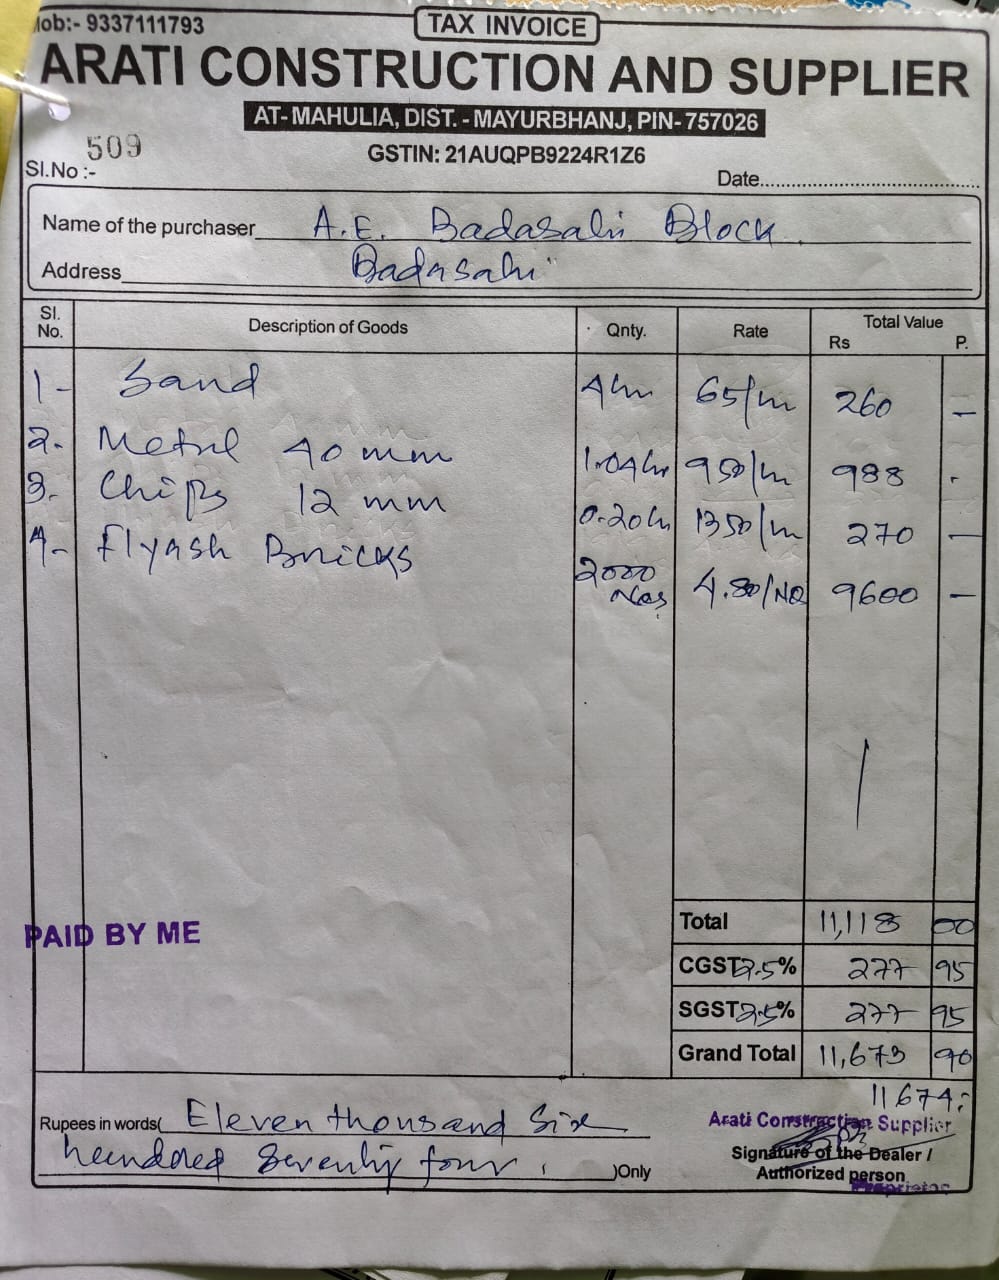 Mob:- 9337111793
TAX INVOICE
ARATI CONSTRUCTION AND SUPPLIER
AT- MAHULIA, DIST. - MAYURBHANJ, PIN- 757026
GSTIN: 21AUQPB9224R1Z6
Sl.No :- 509
Date
Name of the purchaser A.E. Badasahi Block
Address Badasahi
Sl. No. Description of Goods Qnty. Rate Total Value Rs P.
1- Sand 4m 65/m 260 -
2. Metal 40 mm 1.04m 950/m 988 -
3. Chips 12 mm 0.20m 1350/m 270 -
4- Flyash Bricks 2000 Nos 4.80/No 9600 -
Total 11,118 00
PAID BY ME
CGST 2.5% 277 95
SGST 2.5% 277 95
Grand Total 11,673 90
11674.-
Rupees in words( Eleven thousand Six
hundred Seventy four )Only
Arati Construction Supplier
Signature of the Dealer /
Authorized person
Proprietor